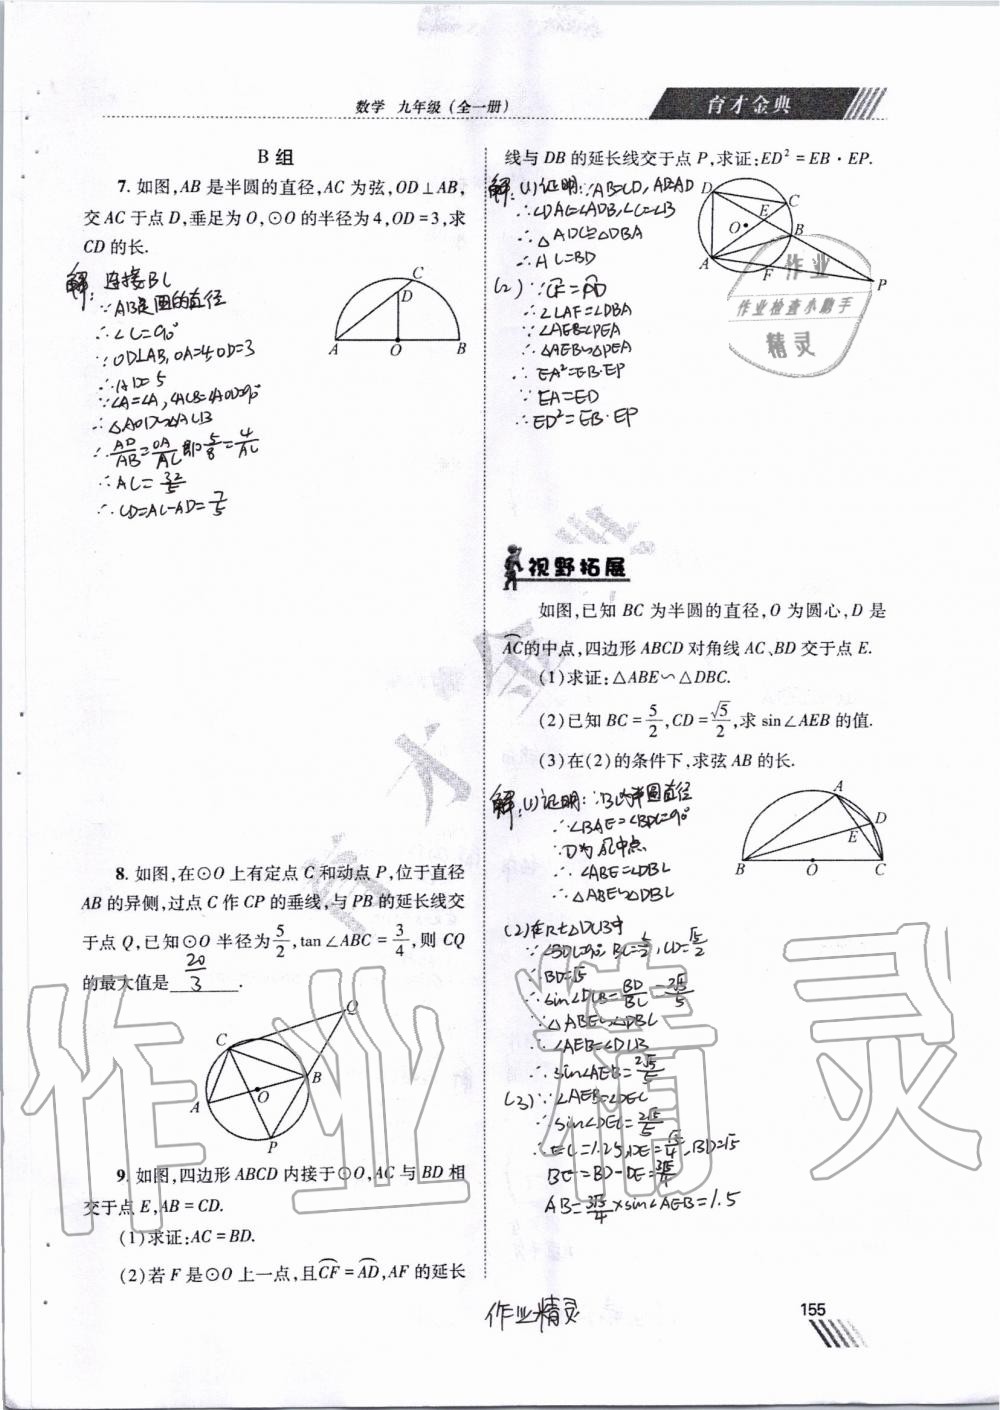 数学 九年级(全一册)
育才金典
B 组
7. 如图,AB 是半圆的直径,AC 为弦,OD⊥AB,
交 AC 于点 D,垂足为 O,⊙O 的半径为 4,OD=3,求
CD 的长.
解: 连接BC
∵AB是圆的直径
∴∠C=90°
∵OD⊥AB,OA=4,OD=3
∴AD=5
∵∠A=∠A,∠ACB=∠AOD=90°
∴△AOD∽△ACB
∴AD/AB=OA/AC 即5/8=4/AC
∴AC=32/5
∴CD=AC-AD=7/5
A O B C D
8. 如图,在⊙O 上有定点 C 和动点 P,位于直径
AB 的异侧,过点 C 作 CP 的垂线,与 PB 的延长线交
于点 Q,已知⊙O 半径为5/2,tan∠ABC=3/4,则 CQ
的最大值是 20/3 .
Q C B O A P
9. 如图,四边形 ABCD 内接于⊙O,AC 与 BD 相
交于点 E,AB=CD.
(1)求证:AC=BD.
(2)若 F 是⊙O 上一点,且CF=AD,AF 的延长
线与 DB 的延长线交于点 P,求证:ED²=EB·EP.
解:(1)证明:∵AB=CD,AD=AD
∴∠DAC=∠ADB,∠C=∠B
∴△ADC≌△DBA
∴AC=BD
(2)∵CF=AD
∴∠CAF=∠DBA
∵∠AEB=∠PEA
∴△AEB∽△PEA
∴EA²=EB·EP
∵EA=ED
∴ED²=EB·EP
D C E O B A F P
作业
作业检查小助手
精灵
视野拓展
如图,已知 BC 为半圆的直径,O 为圆心,D 是
AC的中点,四边形 ABCD 对角线 AC、BD 交于点 E.
(1)求证:△ABE∽△DBC.
(2)已知 BC=5/2,CD=√5/2,求 sin∠AEB 的值.
(3)在(2)的条件下,求弦 AB 的长.
解:(1)证明:∵BC为半圆直径
∴∠BAE=∠BDC=90°
∵D为AC中点
∴∠ABE=∠DBC
∴△ABE∽△DBC
A D E B O C
(2)在Rt△DCB中
∵∠BDC=90°,BC=5/2,CD=√5/2
∴BD=√5
∴sin∠DCB=BD/BC=2√5/5
∵△ABE∽△DBC
∴∠AEB=∠DCB
∴sin∠AEB=2√5/5
(3)∵∠AEB=∠DEC
∴sin∠DEC=2√5/5
∴EC=1.25,DE=√5/4,BD=√5
BE=BD-DE=3√5/4
AB=3√5/4×sin∠AEB=1.5
育才金典
作业精灵
作业精灵
155